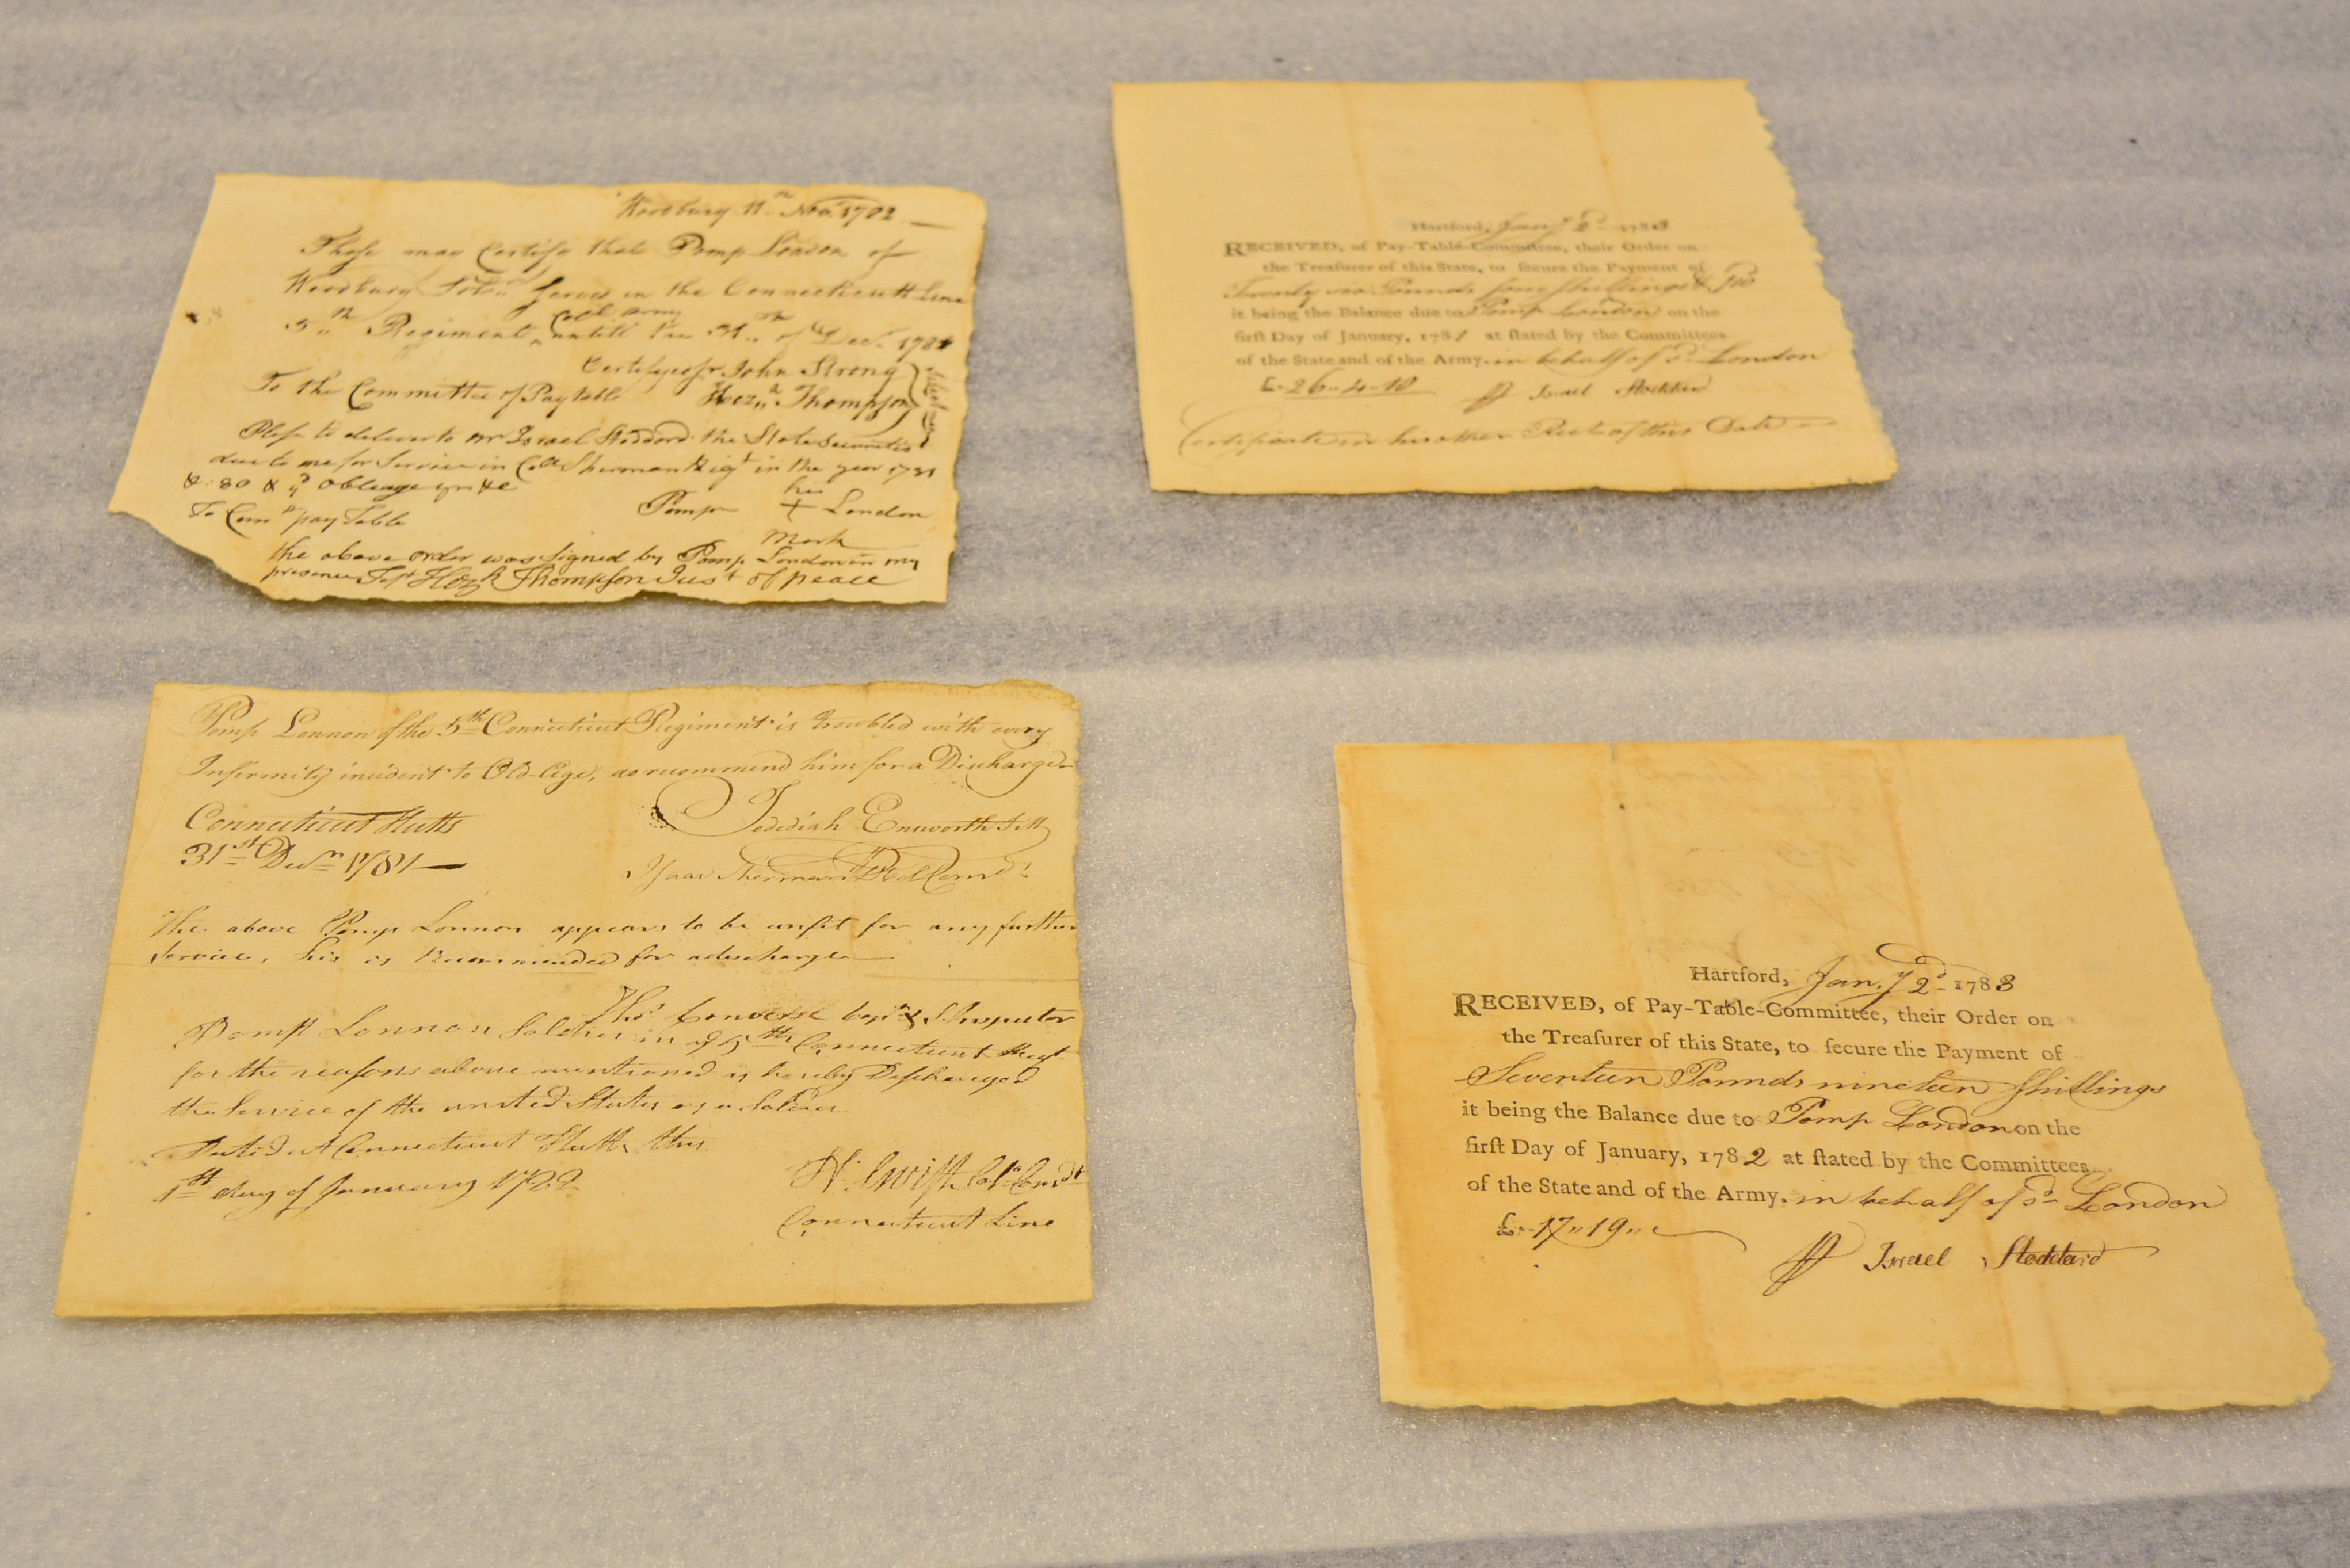 Woodbury 11th Novr 1782
These may Certify that Pomp London of
Woodbury served in the Connecticutt Line
5th Regiment untill the 31th of Decr 1781
Coll Army
Certifyd pr John Strong
To the Committee of Paytable Hezh Thompson
Selectmen
Plese to deliver to mr Israel Stoddord the State Securities
due to me for Service in Coll Shermans Regt in the year 1781
& 80 & Obleage yrs &c
his
To Comtt pay Table Pomp + London
Mark
the above order was signed by Pomp London in my
presence Hezh Thompson Just of peace
Hartford, Jany 2d 1783
RECEIVED, of Pay-Table-Committee, their Order on
the Treaſurer of this State, to ſecure the Payment of
Twenty six Pounds four ſhillings &
it being the Balance due to Pomp London on the
firſt Day of January, 1781 at ſtated by the Committees
of the State and of the Army. in behalf of sd London
£ 26-4-10 Israel Stoddard
Certificate in his other Rect of this Date
Pomp Lonnon of the 5th Connecticut Regiment is troubled with every
Infirmity incident to Old-Age, do recommend him for a Discharge
Connecticut Hutts Jedediah Ensworth
31st Decmr 1781 Isaac Sherman Lt Col Comdt
The above Pomp Lonnon appears to be unfit for any further
Service, his is Recommended for a discharge
Thos Converse Capt & S. Inspector
Pomp Lonnon Soldier in ye 5th Connecticut Regt
for the reaſons above mentioned is hereby Discharged
the Service of the united States as a Soldier
Dated at Connecticut Hutts this
1st day of January 1782 H. Swift Col. Comdt
Connecticut Line
Hartford, Jany 2d 1783
RECEIVED, of Pay-Table-Committee, their Order on
the Treaſurer of this State, to ſecure the Payment of
Seventeen Pounds nineteen ſhillings
it being the Balance due to Pomp London on the
firſt Day of January, 1782 at ſtated by the Committees
of the State and of the Army. in behalf of sd London
£ 17 " 19 "
Israel Stoddard